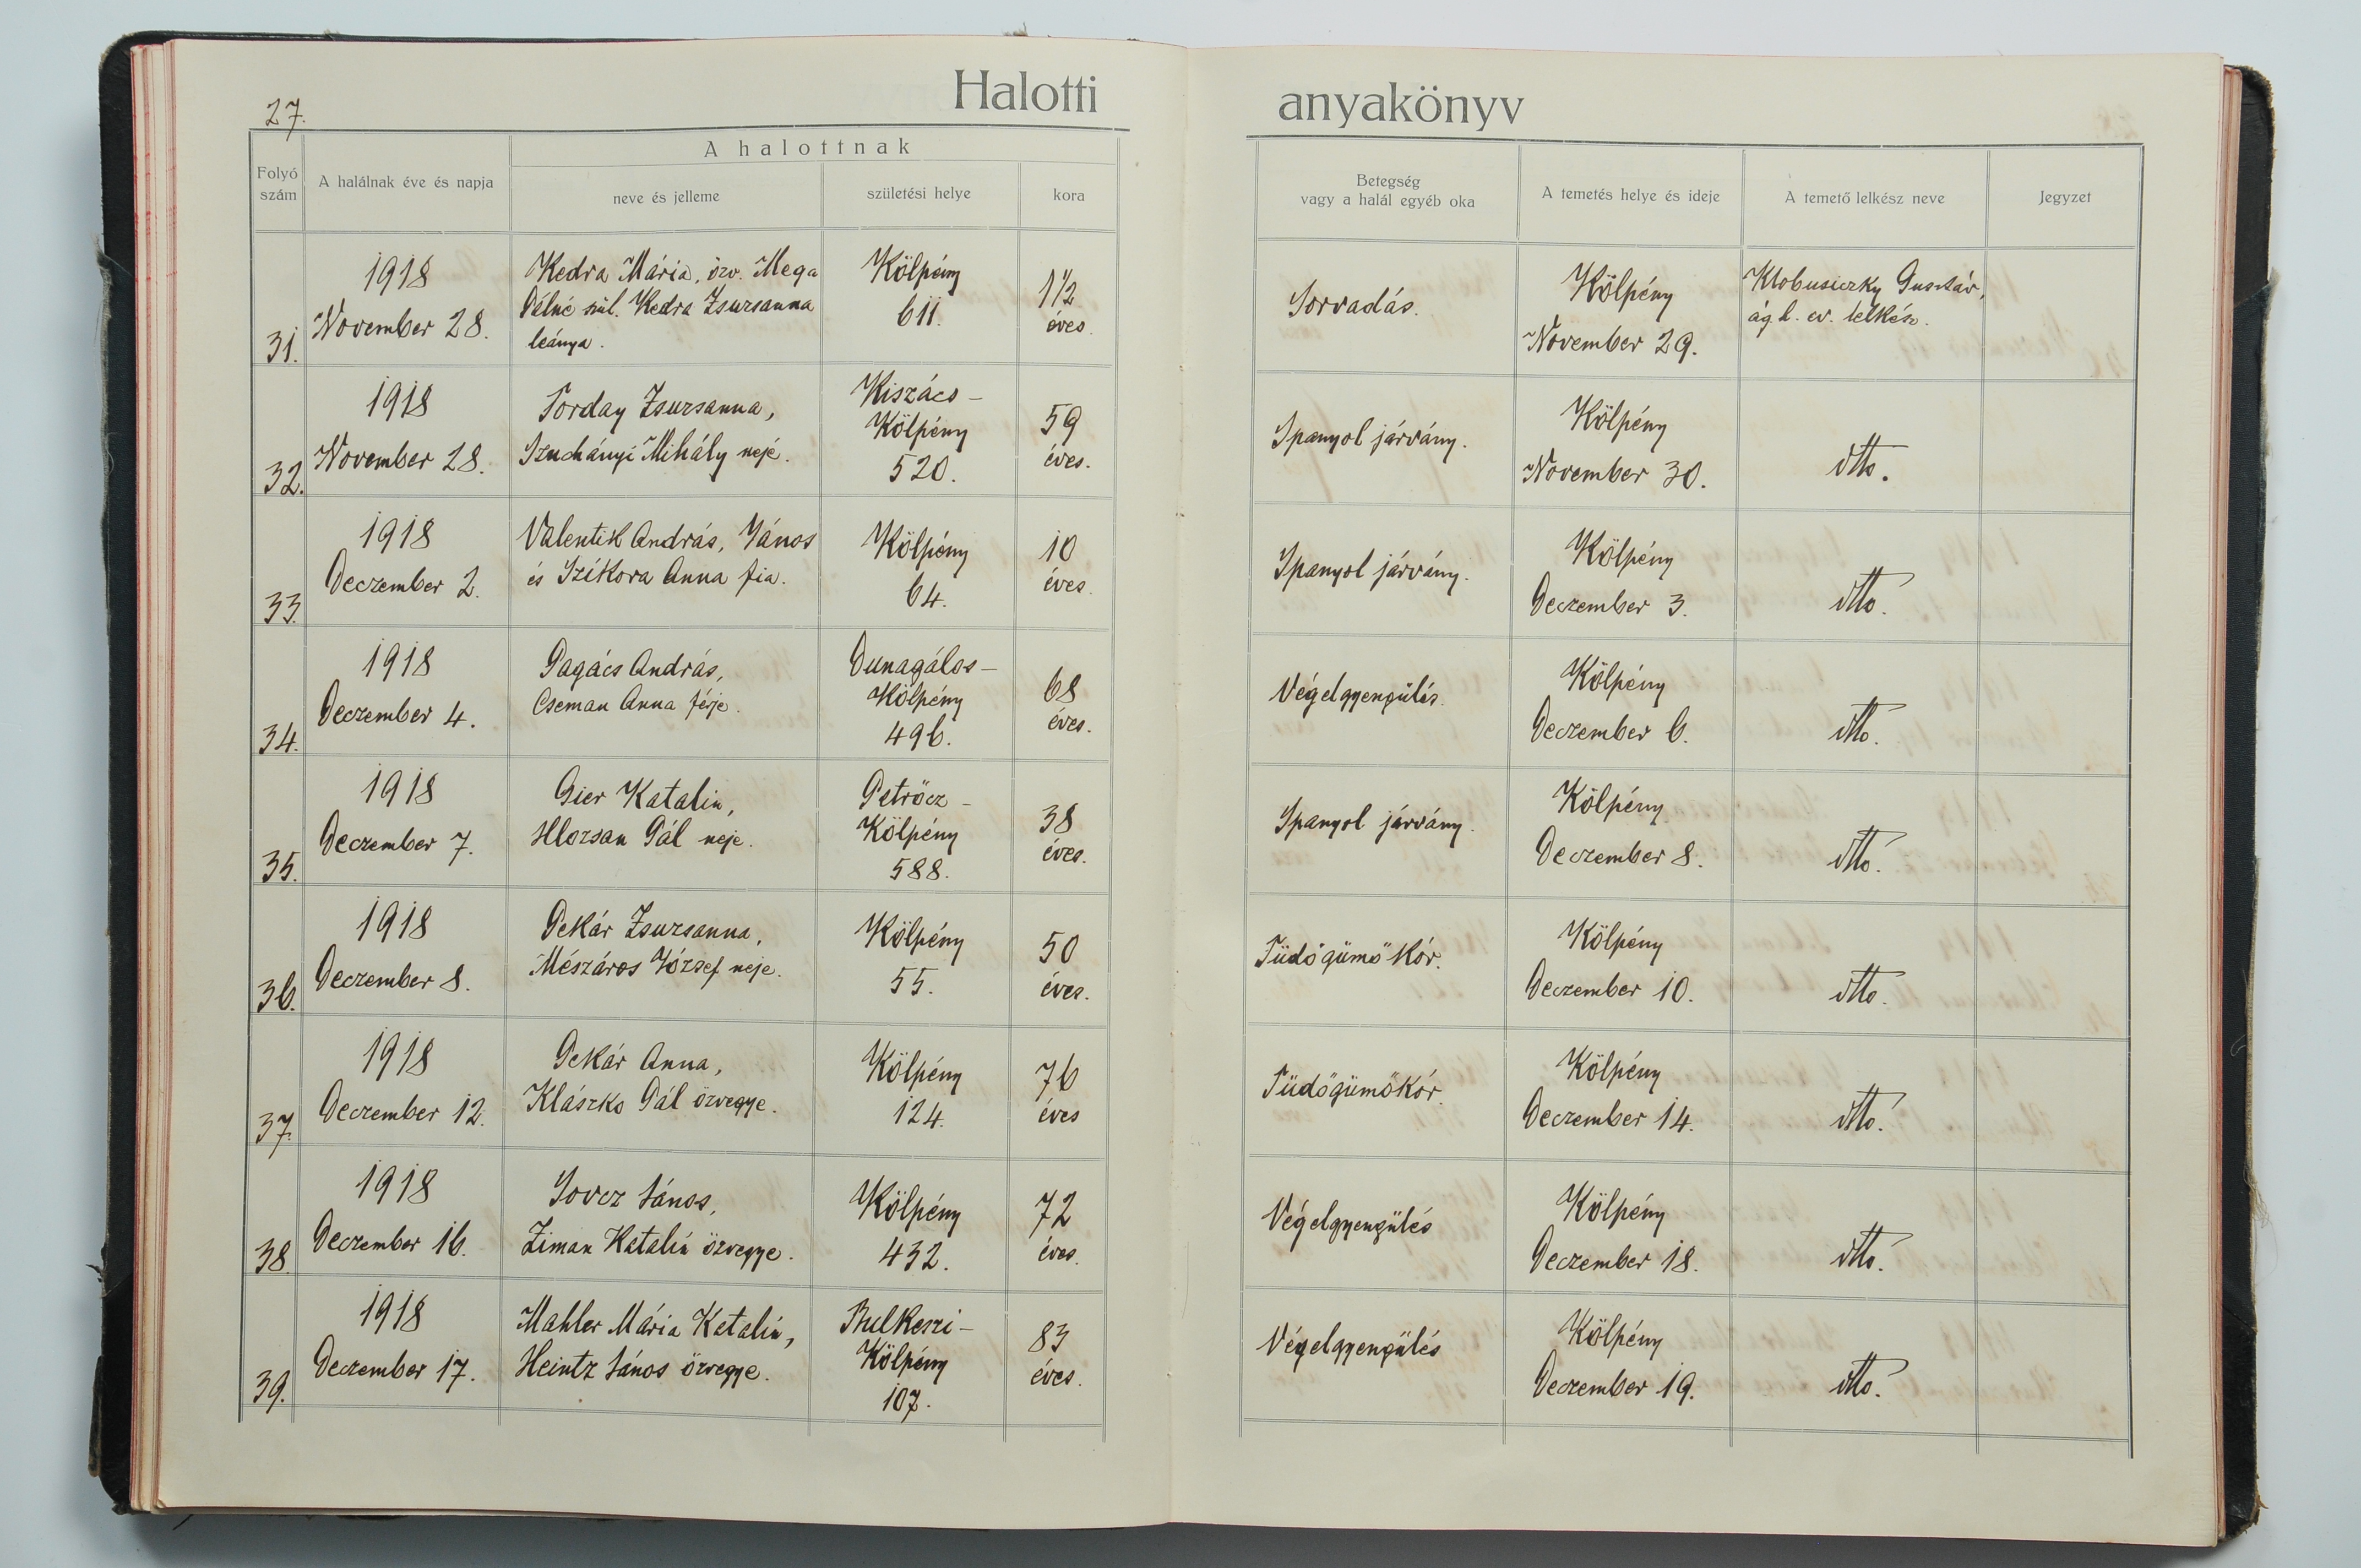 27.
Halotti anyakönyv
Folyó szám
A halálnak éve és napja
A halottnak
neve és jelleme
születési helye
kora
Betegség
vagy a halál egyéb oka
A temetés helye és ideje
A temető lelkész neve
Jegyzet
31.
1918
November 28.
Kedra Mária, özv. Mega
Pálné szül. Kedra Zsuzsanna
leánya.
Kölpény
611.
1 1/2
éves.
Sorvadás.
Kölpény
November 29.
Klobusiczky Gusztáv,
ág. h. ev. lelkész.
32.
1918
November 28.
Torday Zsuzsanna,
Szuchányi Mihály neje.
Kiszács-
Kölpény
520.
59
éves.
Spanyol járvány.
Kölpény
November 30.
dtto.
33.
1918
Deczember 2.
Valentik András, János
és Szíkora Anna fia.
Kölpény
64.
10
éves.
Spanyol járvány.
Kölpény
Deczember 3.
dtto.
34.
1918
Deczember 4.
Pagács András,
Cseman Anna férje.
Dunagálos-
Kölpény
496.
68
éves.
Végelgyengülés.
Kölpény
Deczember 6.
dtto.
35.
1918
Deczember 7.
Gier Katalin,
Hlozsan Pál neje.
Petrőcz-
Kölpény
588.
38
éves.
Spanyol járvány.
Kölpény
Deczember 8.
dtto.
36.
1918
Deczember 8.
Pekár Zsuzsanna,
Mészáros József neje.
Kölpény
55.
50
éves.
Tüdőgümőkór.
Kölpény
Deczember 10.
dtto.
37.
1918
Deczember 12.
Pekár Anna,
Klászko Pál özvegye.
Kölpény
124.
76
éves
Tüdőgümőkór.
Kölpény
Deczember 14.
dtto.
38.
1918
Deczember 16.
Sovcz János,
Ziman Katalin özvegye.
Kölpény
432.
72
éves.
Végelgyengülés
Kölpény
Deczember 18.
dtto.
39.
1918
Deczember 17.
Mahler Mária Katalin,
Heintz János özvegye.
Bulkeszi-
Kölpény
107.
83
éves.
Végelgyengülés
Kölpény
Deczember 19.
dtto.